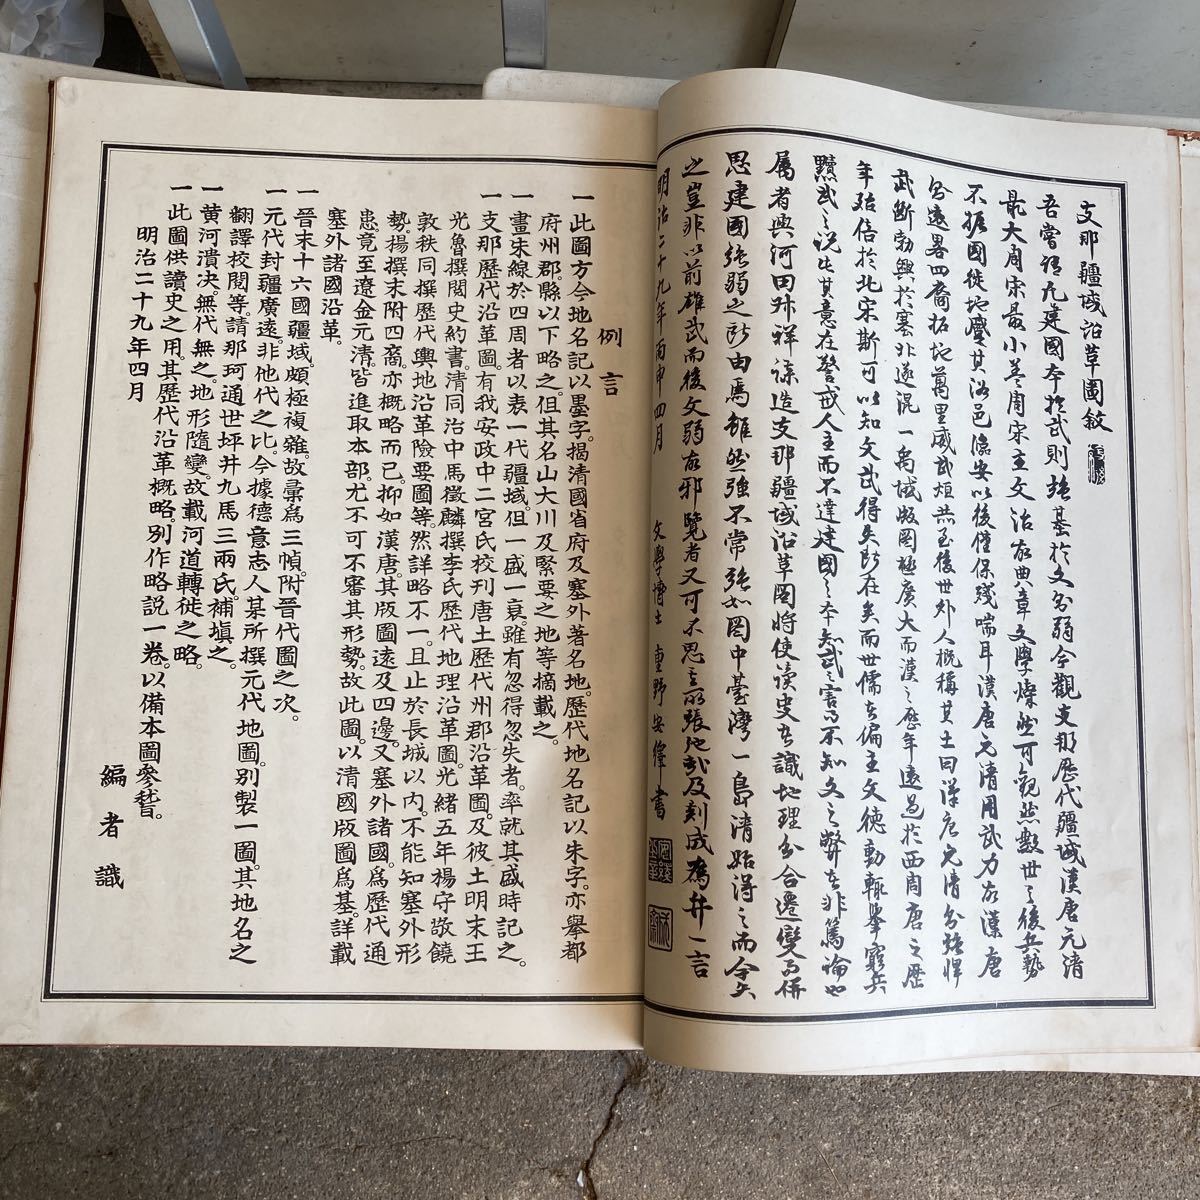 支那疆域沿革圖敘
吾嘗謂凡建國本於武則強基於文則弱今觀支那歷代疆域漢唐元清
最大周宋最小蓋周宋主文治故典章文學燦然可觀然數世之後兵勢
不振國徒地蹙其洛邑臨安以後僅保殘喘耳漢唐元清用武力故漢唐
能遠畧四裔拓地萬里威武烜
武斷勃興於塞北遂混一禹域版圖極廣大而漢之歷年遠過於西周唐之歷
年殆倍於北宋斯可以知文武得失所在矣而世儒者偏主文德動輒舉窮兵
黷武之說此其意在警戒人主而不達建國之本知武之害而不知文之弊者非篤論也
屬者與河田 祥 造支那疆域沿革圖將使讀史者識地理分合遷變而併
思建國強弱之所由焉雖然強不常強如圖中臺灣一島清始得之而今失
之豈非以前雄武而後文弱故邪覽者又可不思主所張也哉及刻成為弁一言
明治二十九年丙申四月
文學博士 重野安繹書
例言
一此圖方今地名記以墨字。揭清國省府及塞外著名地。歷代地名記以朱字。亦舉都
府州郡。縣以下略之。但其名山大川及緊要之地等摘載之。
一畫朱線於四周者以表一代疆域。但一盛一衰。雖有忽得忽失者。率就其盛時記之。
一支那歷代沿革圖。有我安政中二宮氏校刊唐土歷代州郡沿革圖。及彼土明末王
光魯撰閱史約書。清同治中馬徵麟撰李氏歷代地理沿革圖。光緒五年楊守敬饒
敦秩同撰歷代輿地沿革險要圖等。然詳略不一。且止於長城以内。不能知塞外形
勢。楊撰末附四裔。亦概略而已。抑如漢唐。其版圖遠及四邊。又塞外諸國。為歷代通
患。竟至遼金元清。皆進取本部。尤不可不審其形勢。故此圖。以清國版圖為基。詳載
塞外諸國沿革。
一晉末十六國疆域。頗極複雜。故彙為三幀。附晉代圖之次。
一元代封疆廣遠。非他代之比。今據德意志人某所撰元代地圖。別製一圖。其地名之
翻譯校閱等。請那珂通世坪井九馬三兩氏。補塡之。
一黃河潰決。無代無之。地形隨變。故載河道轉徙之略。
一此圖供讀史之用。其歷代沿革概略。別作略說一卷。以備本圖參稽。
明治二十九年四月
編者識